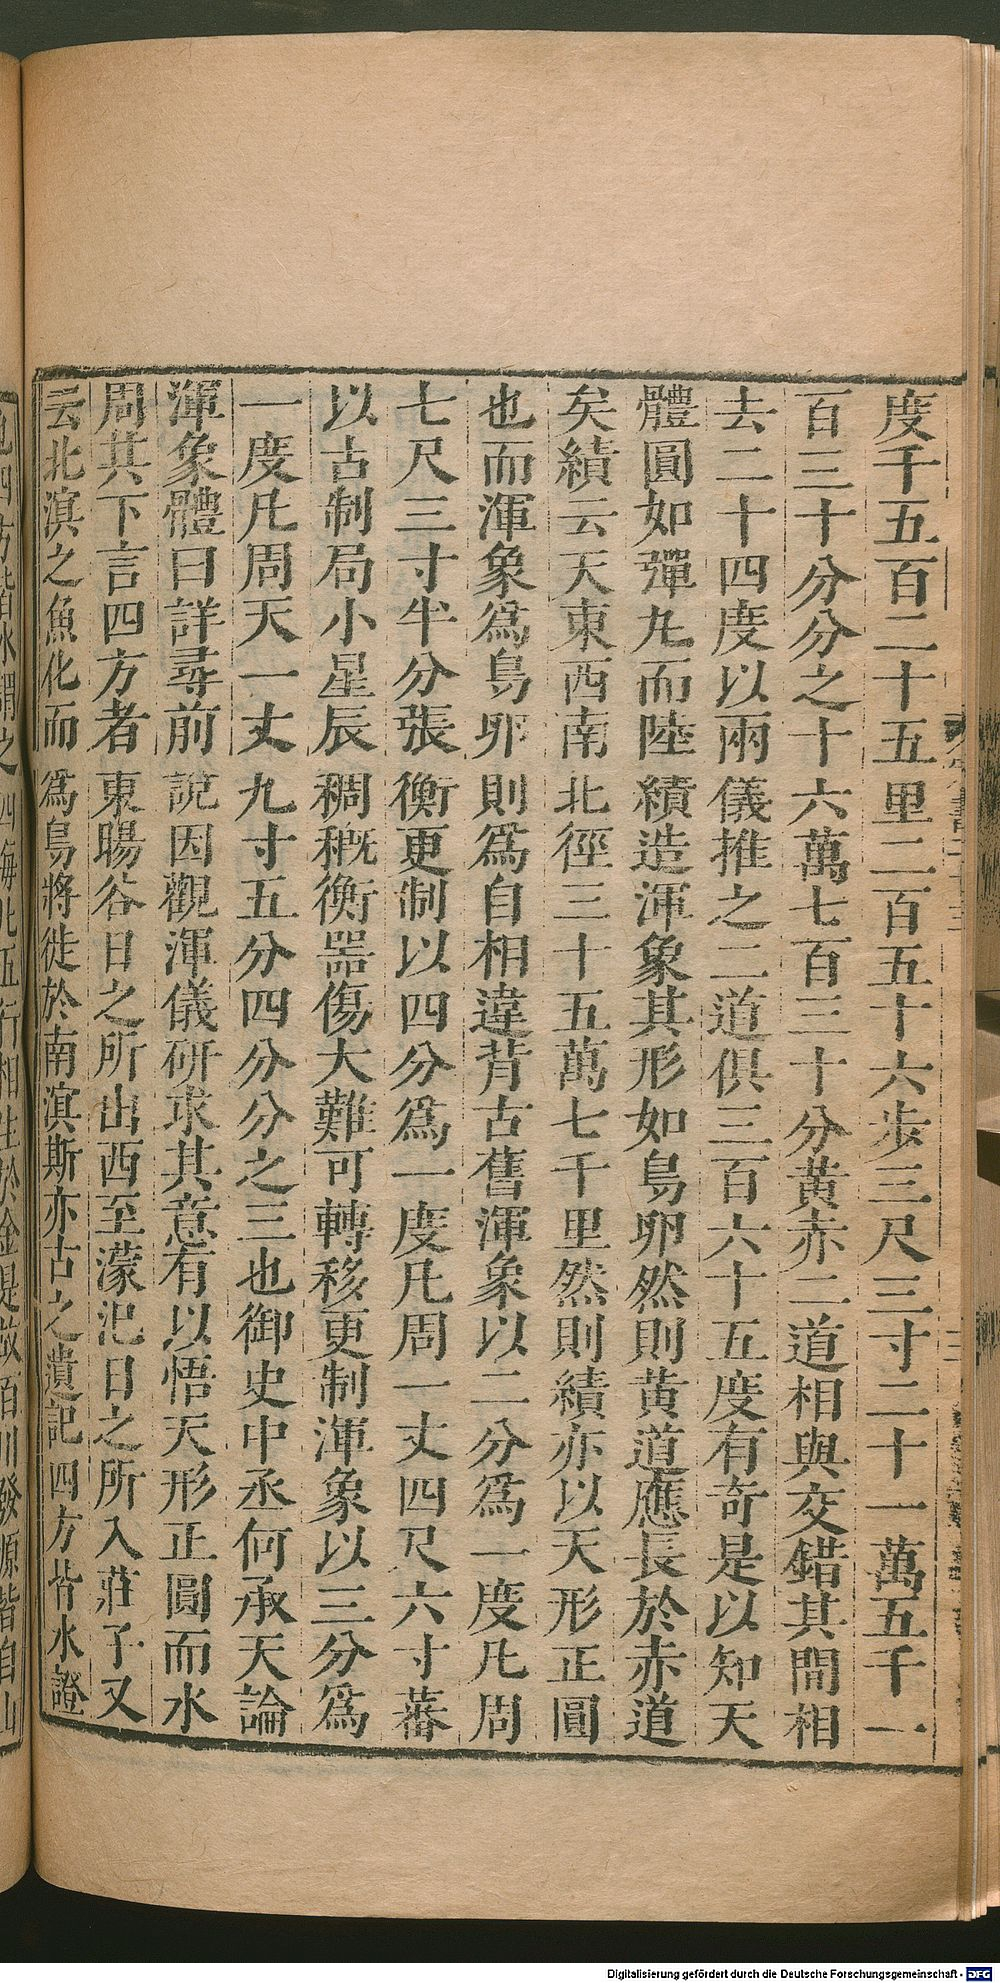 度千五百二十五里二百五十六步三尺三寸二十一萬五千一
百三十分分之十六萬七百三十分黄赤二道相與交錯其間相
去二十四度以兩儀推之二道俱三百六十五度有奇是以知天
體圓如彈丸而陸績造渾象其形如鳥卵然則黄道應長於赤道
矣績云天東西南北徑三十五萬七千里然則績亦以天形正圓
也而渾象爲鳥卵則爲自相違背古舊渾象以二分爲一度凡周
七尺三寸半分張衡更制以四分爲一度凡周一丈四尺六寸蕃
以古制局小星辰稠穊衡噐傷大難可轉移更制渾象以三分爲
一度凡周天一丈九寸五分四分分之三也御史中丞何承天論
渾象體曰詳尋前說因觀渾儀研求其意有以悟天形正圓而水
周其下言四方者東暘谷日之所出西至濛汜日之所入莊子又
云北溟之魚化而爲鳥將徙於南溟斯亦古之遺記四方皆水證
四方皆水謂之四海北五行相生於金是故百川發源皆自山
Digitalisierung gefördert durch die Deutsche Forschungsgemeinschaft - DFG